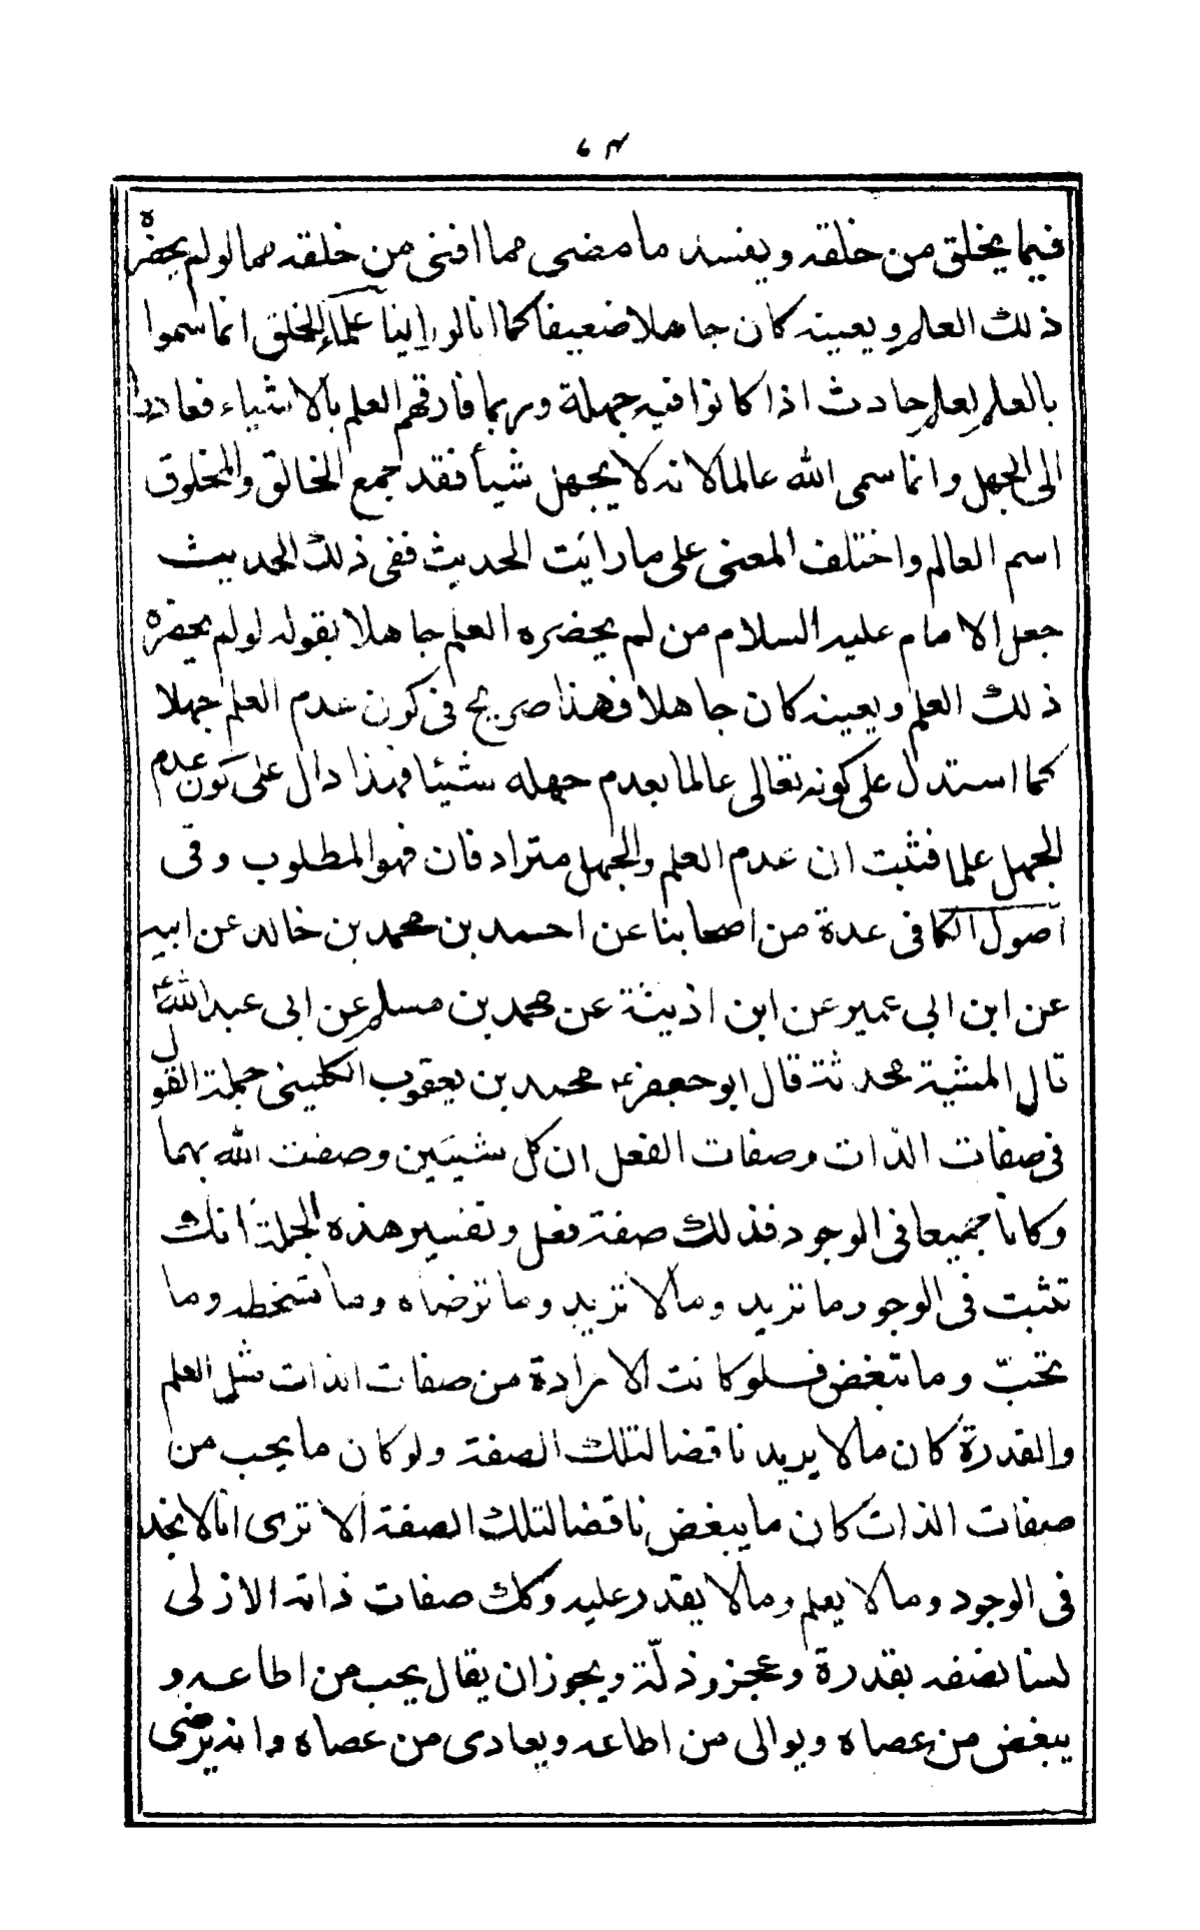 ٦٣
فيما يخلق من خلقه ويفسد ما مضى مما افنى من خلقه مما لو لم يحضره
ذلك العلم ويعينه كان جاهلا ضعيفا كما انا لو راينا علماء الخلق انما سموا
بالعلم لعلم حادث اذا كانوا فيه جهلة وربما فارقهم العلم بالاشياء فعادوا
الى الجهل وانما سمى الله عالما لانه لا يجهل شيأ فقد جمع الخالق والمخلوق
اسم العالم واختلف المعنى على ما رائت الحديث ففى ذلك الحديث
جعل الامام عليه السلام من لم يحضره العلم جاهلا بقوله لو لم يحضره
ذلك العلم ويعينه كان جاهلا فهذا صريح فى كون عدم العلم جهلا
كما استدل على كونه تعالى عالما بعدم جهله شيئا فهذا دال على كون عدم
الجهل علما فثبت ان عدم العلم والجهل مترادفان فهو المطلوب وفى
اصول الكافى عدة من اصحابنا عن احمد بن محمد بن خالد عن ابيه
عن ابن ابى عمير عن ابن اذينة عن محمد بن مسلم عن ابى عبد الله ع
قال المشية محدثة قال ابو جعفر ع محمد بن يعقوب الكلينى جملة القول
فى صفات الذات وصفات الفعل ان كل شيئين وصفت الله بهما
وكانا جميعا فى الوجود فذلك صفة فعل وتفسير هذه الجملة انك
تثبت فى الوجود ما تريد وما لا تريد وما ترضاه وما تسخطه وما
تحبّ وما تبغض فلو كانت الارادة من صفات الذات مثل العلم
والقدرة كان ما لا يريد ناقضا لتلك الصفة ولو كان ما يحب من
صفات الذات كان ما يبغض ناقضا لتلك الصفة الا ترى انا لا نجد
فى الوجود وما لا يعلم وما لا يقدر عليه وكك صفات ذاته الازلى
لسنا نصفه بقدرة وعجز وذلّة ويجوز ان يقال يحب من اطاعه و
يبغض من عصاه ويوالى من اطاعه ويعادى من عصاه وانه يرضى